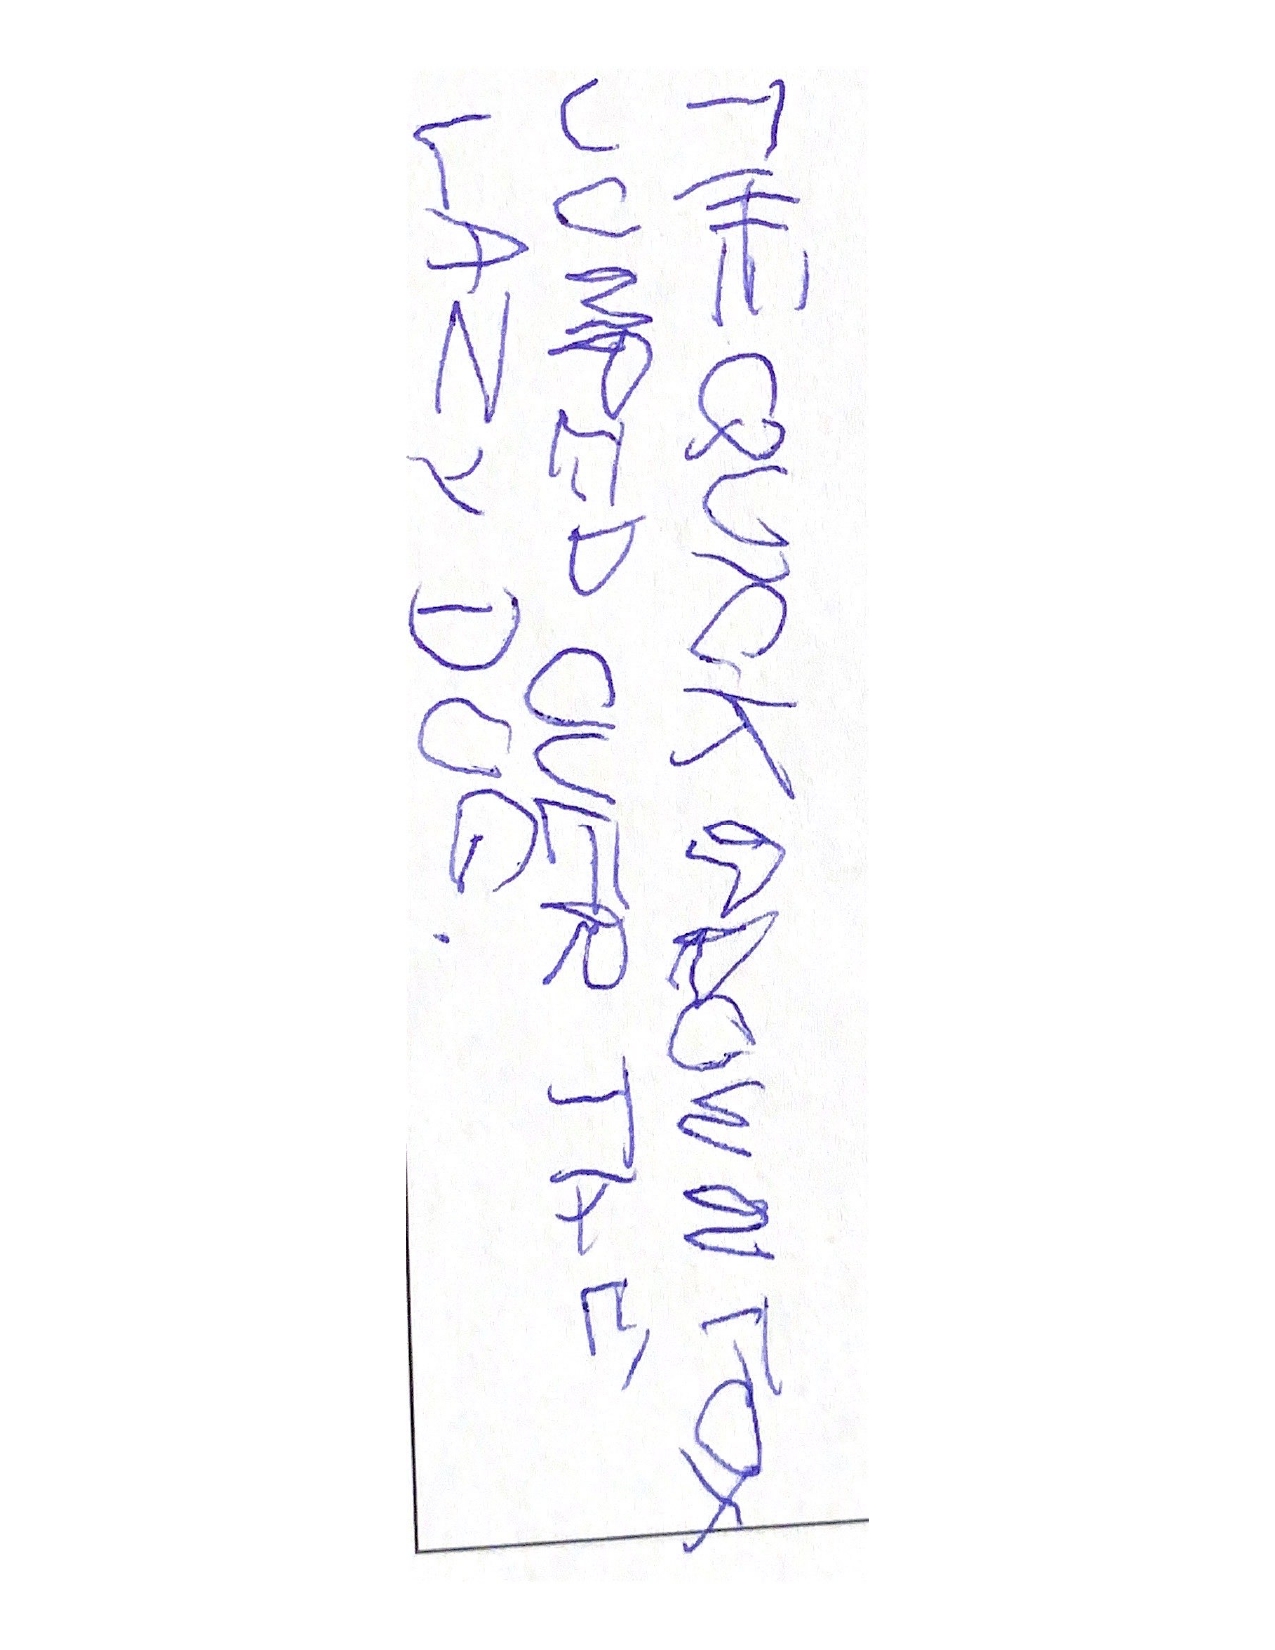 THE QUICK BROWN FOX
JUMPED OVER THE
LAZY DOG.